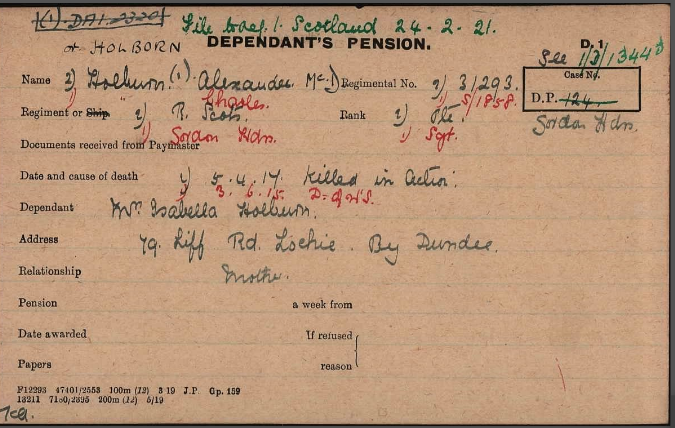 (1) DA1. 2320 File trasf. 1. Scotland 24-2-21.
or HOLBORN DEPENDANT'S PENSION. D. 1
See 1/3/1344 D
Name 2) Holburn. (1) Alexander Mc.D Regimental No. 2) 31293. Case No.
1) Charles. 1) S/1858. D.P. 124
Regiment or Ship. 2) R. Scots. Rank 2) Pte. Gordon Hdrs.
1) Gordon Hdrs. 1) Sgt.
Documents received from Paymaster
Date and cause of death 2) 5.4.17. Killed in Action.
1) 3.6.15. D. of W's.
Dependant Mrs Isabella Holburn.
Address 79. Liff Rd. Lochie. By Dundee.
Relationship Mother.
Pension a week from
Date awarded If refused
Papers reason
F12293 47401/2553 100m (12) 3 19 J.P. Gp. 159
13211 7180/2395 200m (12) 5/19